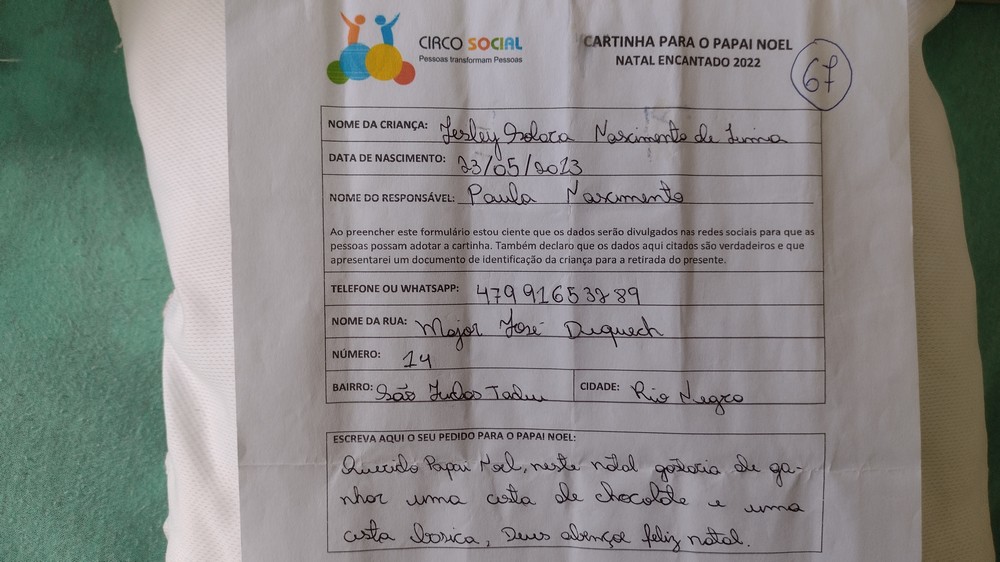 CIRCO SOCIAL
Pessoas transformam Pessoas
CARTINHA PARA O PAPAI NOEL
NATAL ENCANTADO 2022
67
NOME DA CRIANÇA: Nascimento de
DATA DE NASCIMENTO: 23/05/2013
NOME DO RESPONSÁVEL: Paula Nascimento
Ao preencher este formulário estou ciente que os dados serão divulgados nas redes sociais para que as
pessoas possam adotar a cartinha. Também declaro que os dados aqui citados são verdadeiros e que
apresentarei um documento de identificação da criança para a retirada do presente.
TELEFONE OU WHATSAPP:
NOME DA RUA: Major José
NÚMERO: 14
BAIRRO: São Judas Tadeu CIDADE: Rio Negro
ESCREVA AQUI O SEU PEDIDO PARA O PAPAI NOEL:
Querido Papai Noel, neste natal gostaria de ga-
nhar uma cesta de chocolate e uma
cesta basica, Deus abençoe feliz natal.